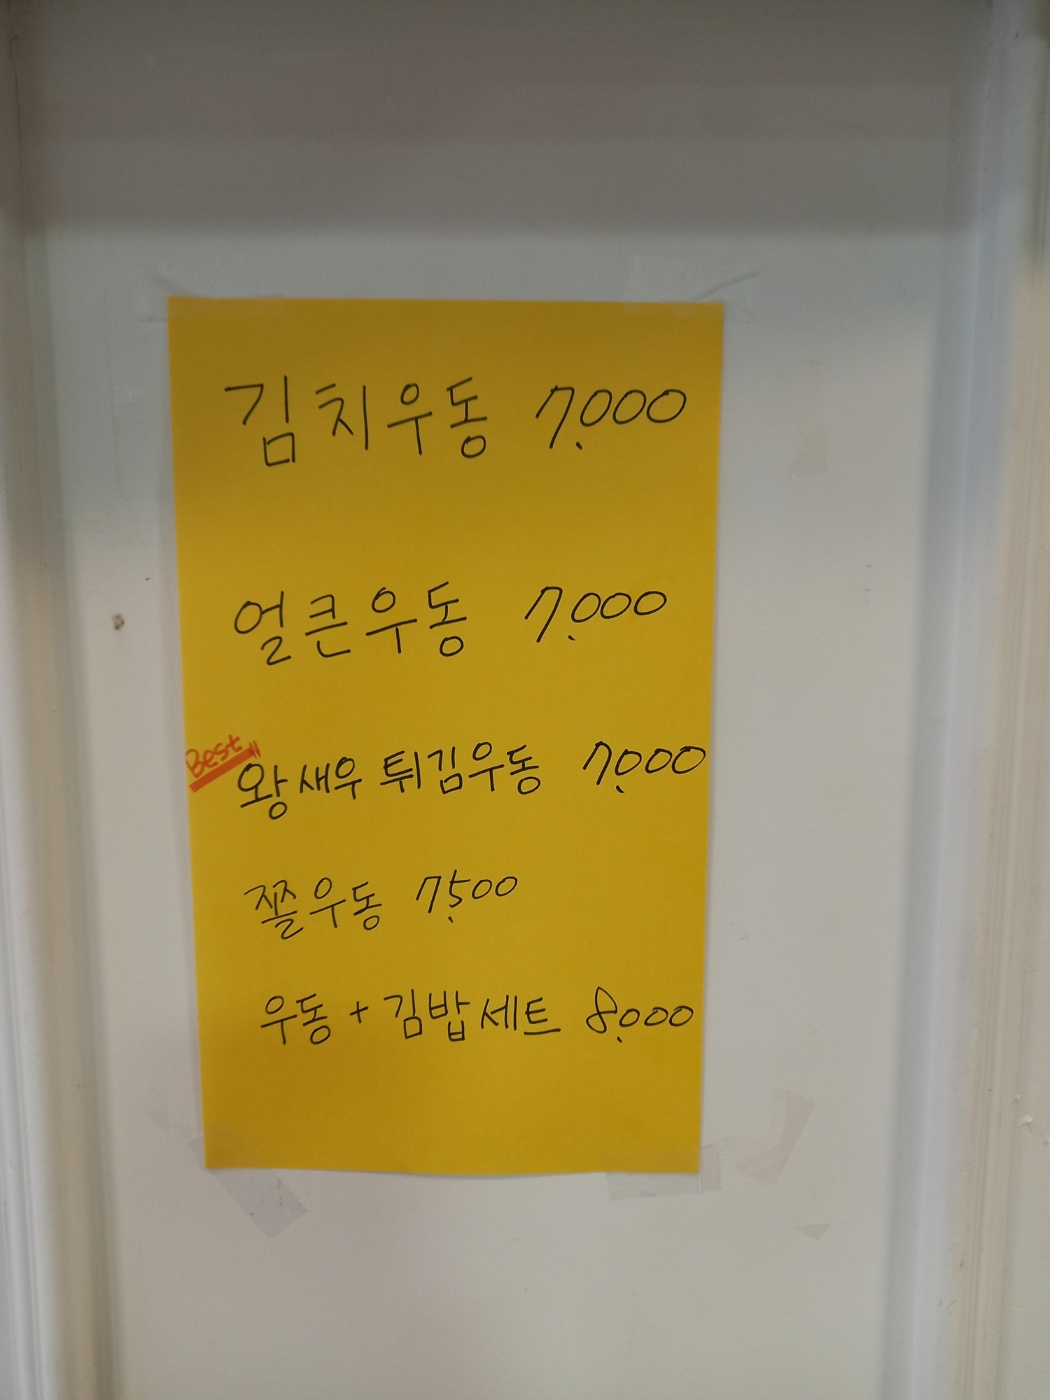 김치우동 7.000
얼큰우동 7.000
Best
왕새우 튀김우동 7.000
쫄우동 7.500
우동 + 김밥세트 8.000